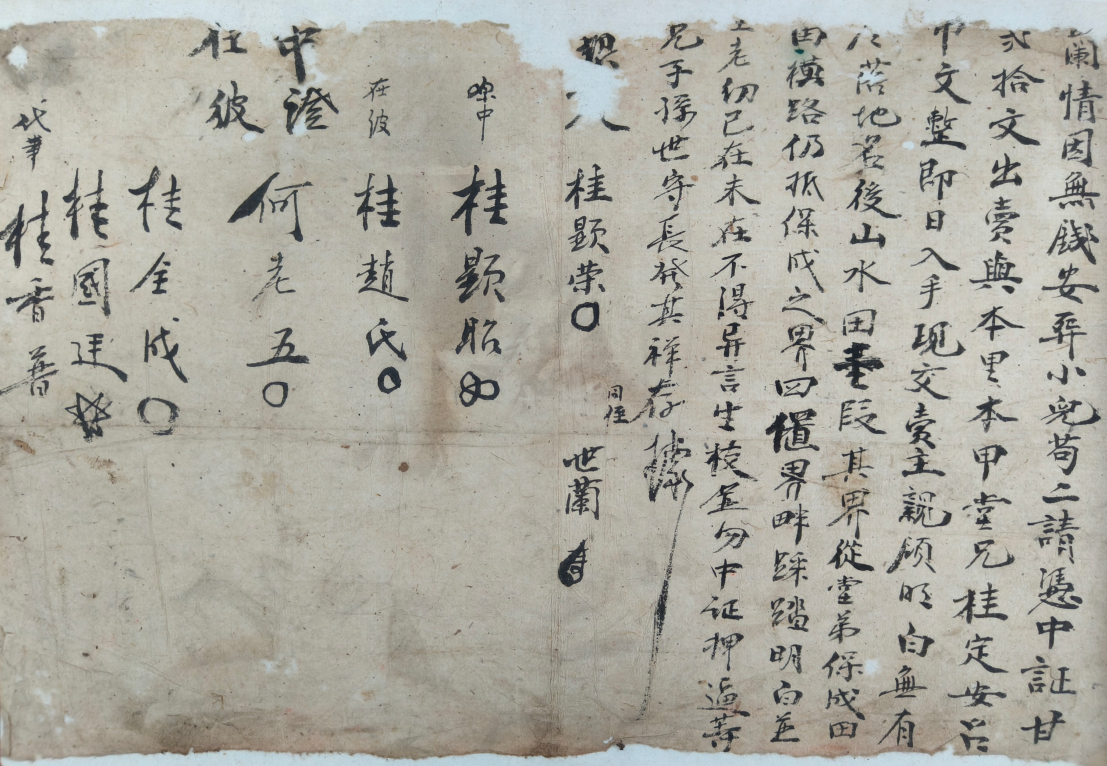 蘭情因無錢安葬小兒苟二請憑中証甘
弍拾文出賣與本里本甲堂兄桂定安名
巾文整即日入手現交賣主親領明白無有
落地名後山水田壹段其界從堂弟保成田
田橫路仍抵保成之界四置界畔踩踏明白並
老仞已在未在不得异言生枝並勿中証押逼等
兄子孫世守長發其祥存據
桂顯荣〇
同侄 世蘭
憑中 桂顯昭
在彼 桂趙氏〇
中證 何老五〇
在彼 桂金成〇
桂國廷
代筆 桂香普